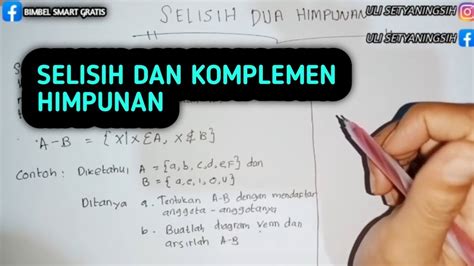 BIMBEL SMART GRATIS
SELISIH DUA HIMPUNAN
ULI SETYANINGSIH
ULI SETYANINGSIH
SELISIH DAN KOMPLEMEN
HIMPUNAN
A-B = {X|X∈A, X∉B}
Contoh: Diketahui A = {a,b,c,d,e,F} dan
B = {a,e,i,o,u}
Ditanya a. Tentukan A-B dengan mendaftar
anggota-anggotanya
b. Buatlah diagram Venn dan
arsirlah A-B